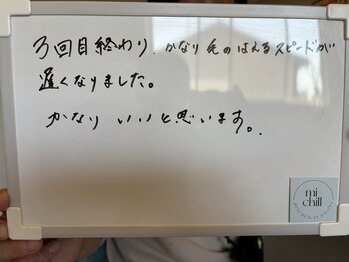 3回目終わり、かなり毛のはえるスピードが
遅くなりました。
かなり いいと思います。
mi
chill